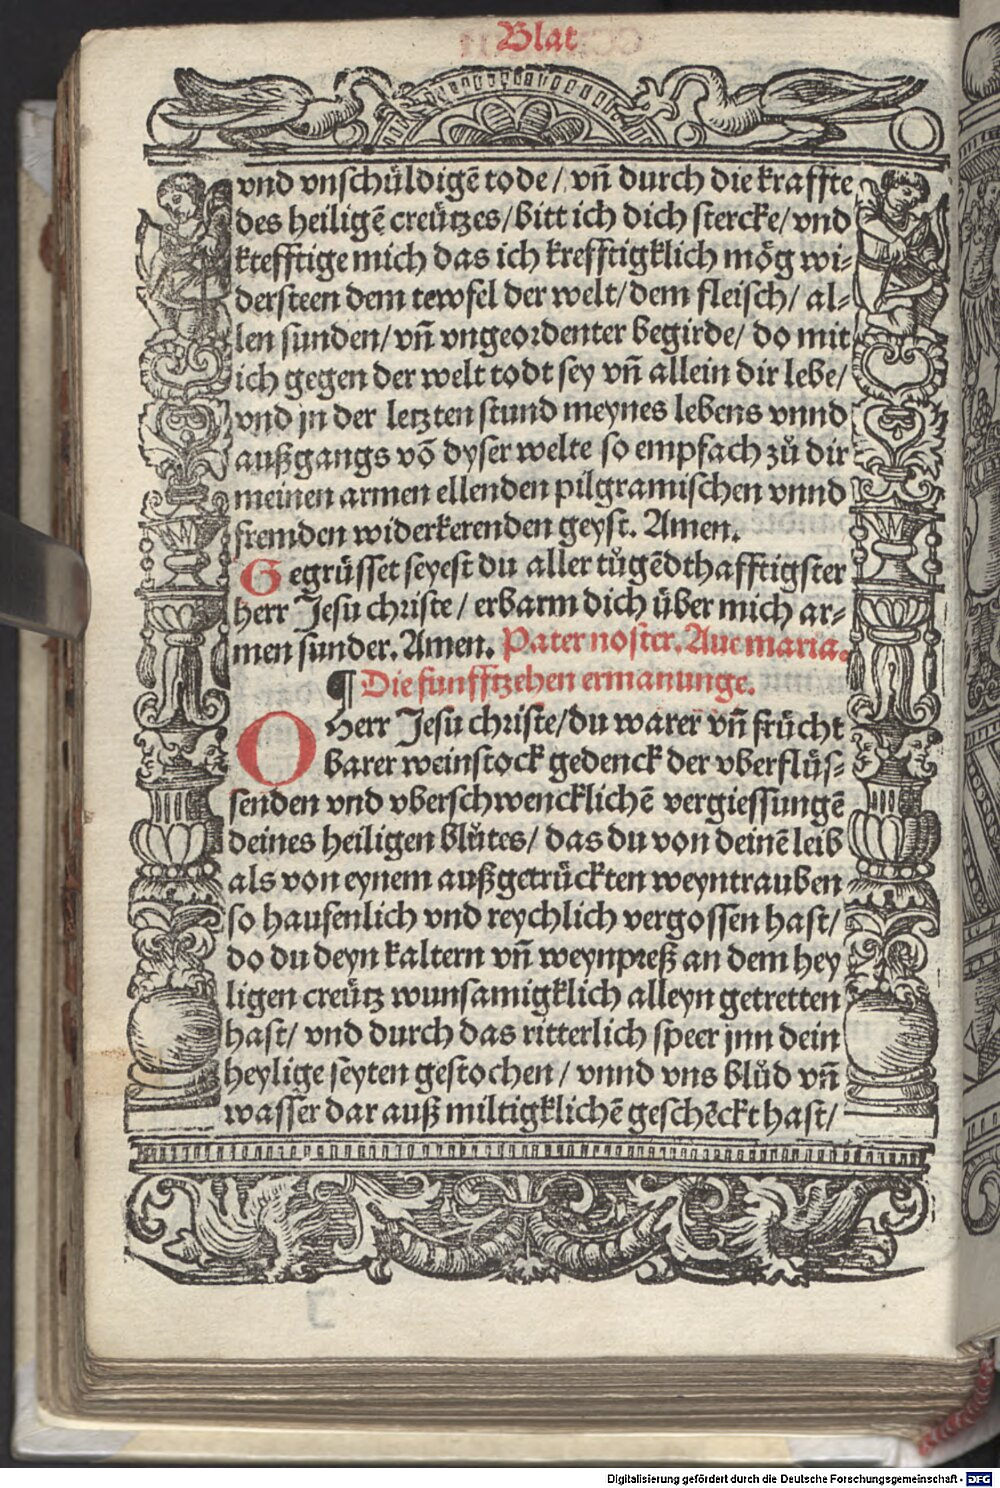 Blat
vnd vnschůldigē tode / vñ durch die kraffte
des heiligē creützes / bitt ich dich stercke / vnd
ktefftige mich das ich krefftigklich mög wi⸗
dersteen dem tewfel der welt / dem fleisch / al⸗
len sunden / vñ vngeordenter begirde / do mit
ich gegen der welt todt sey vñ allein dir lebe /
vnd jn der letzten stund meynes lebens vnnd
außgangs vō dyser welte so empfach zů dir
meinen armen ellenden pilgramischen vnnd
fremden widerkerenden geyst. Amen.
Gegrüsset seyest du aller tůgēdthafftigster
herr Jesu christe / erbarm dich über mich ar⸗
men sunder. Amen. Pater noster. Aue maria.
¶ Die funfftzehen ermanunge.
O Herr Jesu christe / du warer vñ frücht
barer weinstock gedenck der vberflüs⸗
senden vnd vberschwencklichē vergiessungē
deines heiligen blůtes / das du von deinē leib
als von eynem außgetrückten weyntrauben
so haufenlich vnd reychlich vergossen hast /
do du deyn kaltern vñ weynpreß an dem hey
ligen creütz wunsamigklich alleyn getretten
hast / vnd durch das ritterlich speer jnn dein
heylige seyten gestochen / vnnd vns blůd vñ
wasser dar auß miltigklichē geschēckt hast /
Digitalisierung gefördert durch die Deutsche Forschungsgemeinschaft - DFG